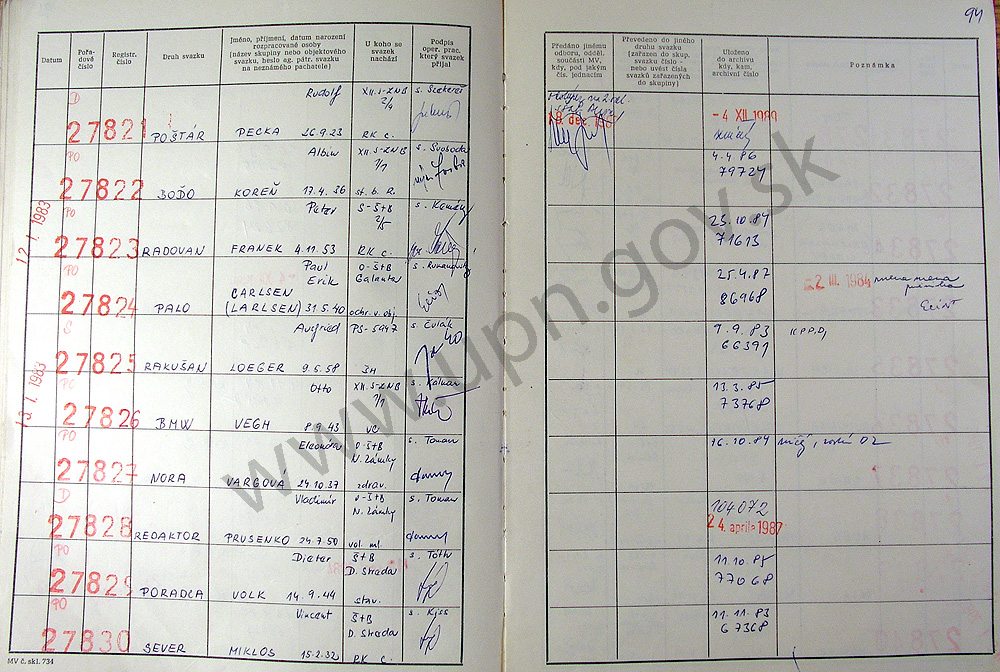 94
Datum
Pořadové číslo
Registr. číslo
Druh svazku
Jméno, příjmení, datum narození rozpracované osoby (název skupiny nebo objektového svazku, heslo ag. pátr. svazku na neznámého pachatele)
U koho se svazek nachází
Podpis oper. prac. který svazek přijal
Předáno jinému odboru, odděl. součásti MV, kdy, pod jakým čís. jednacím
Převedeno do jiného druhu svazku (zařazen do skup. svazku číslo - nebo uvést čísla svazků zařazených do skupiny)
Uloženo do archivu kdy, kam, archivní číslo
Poznámka
D Rudolf XII.S-ZNB s. Szekereš
2/4
27821 POŠTÁR DECKA 26.9.23 RK c. - 4 XII 1989
PO Albin XII.S-ZNB s. Svoboda 4.4.86
7/1 79724
27822 BOĎO KOREŇ 17.4.36 st. b. R.
12 1. 1983
PO Peter S-ŠtB 25.10.84
2/5 71613
27823 RADOVAN FRANEK 4.11.53 RK c.
PO Paul O-ŠtB 25.4.87 2 III. 1984
Erik Galanta 86968
CARLSEN
27824 PALO (LARLSEN) 31.5.40 ochr. v. obj.
C PS-5947 s. Čulák 9.9.83 KPPD,
40 66391
27825 RAKUŠAN LOEGER 9.5.58
13 1. 1983
PO Otto XII.S-ZNB s. Kálman 13.3.85
7/1 73768
27826 BMW VEGH 8.9.43 VC
PO Eleonóra O-ŠtB s. Toman 16.10.84
N. Zámky
27827 NORA VARGOVÁ 24.10.37 zdrav.
D Vladimír O-ŠtB s. Toman 104072
N. Zámky 24. apríla 1987
27828 REDAKTOR PRUSENKO 24.7.50 vol. ml.
PO Dieter ŠtB s. Tóth 11.10.85
D. Streda 77068
27829 PORADCA VOLK 14.9.44 stav.
PO Vincent ŠtB s. Kiss 11.11.83
D. Streda 67368
27830 SEVER MIKLOS 15.2.32 RK c.
MV č. skl. 734
www.upn.gov.sk